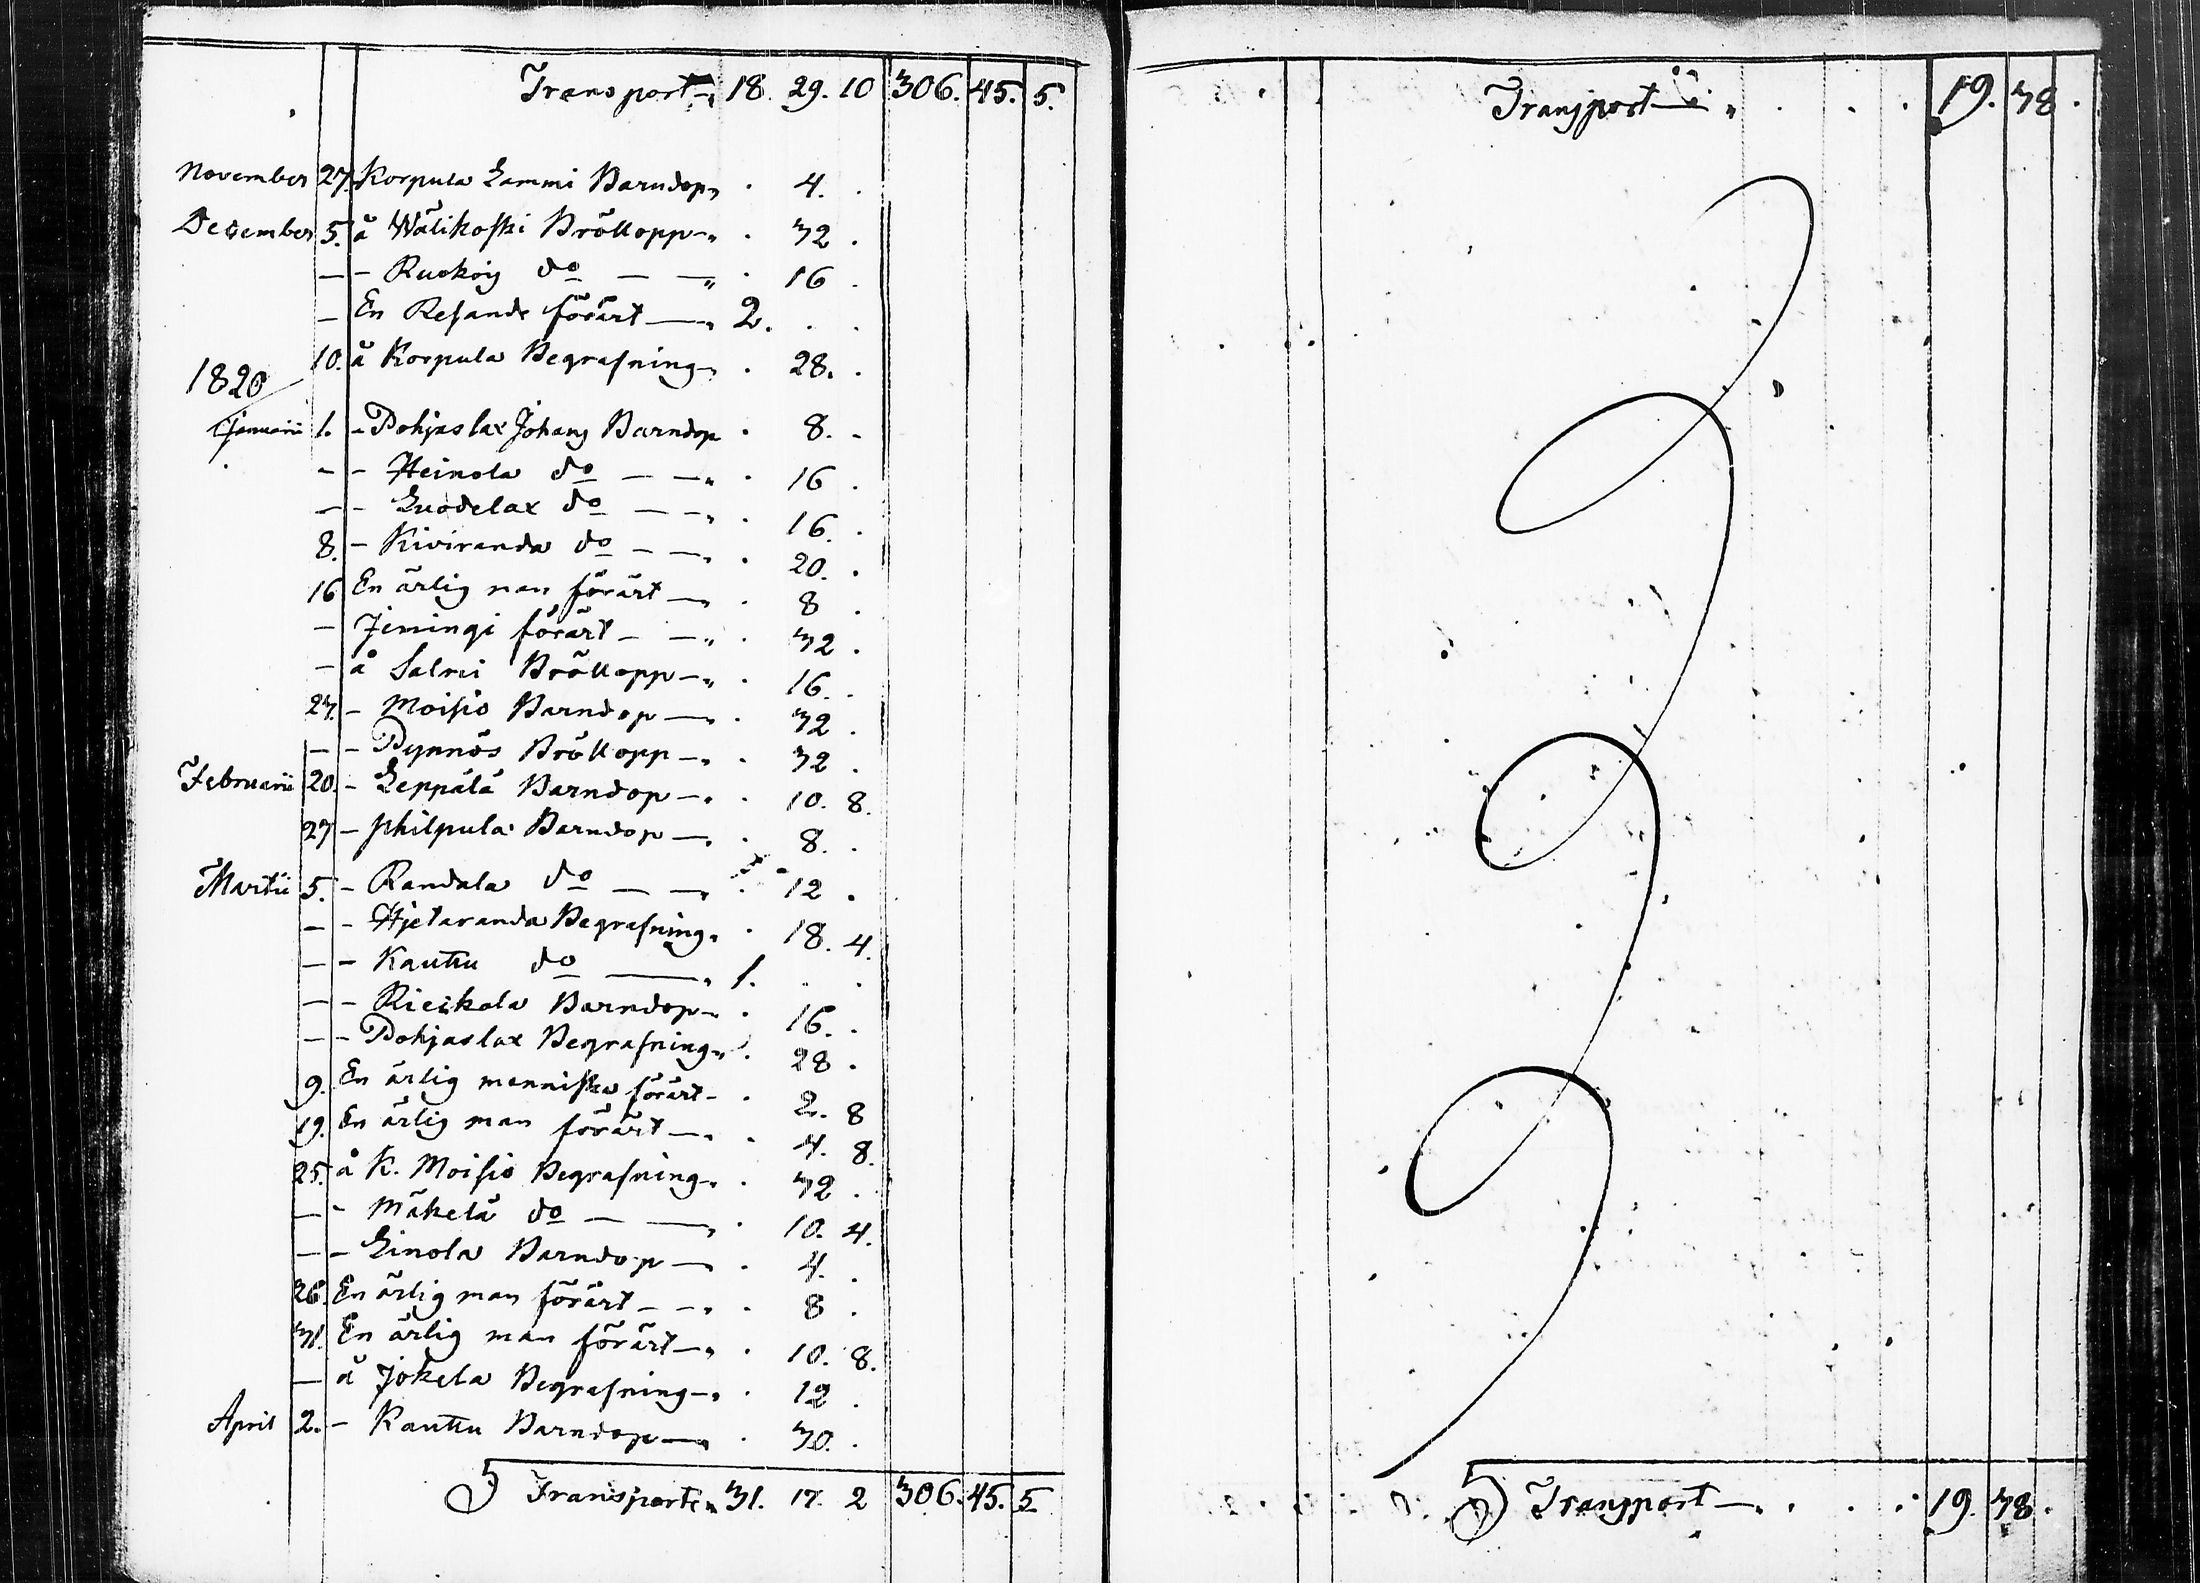 Transport „ 18. 29. 10 306. 45. 5.
November 27. Korpula Lammi Barndop „ . 4. .
December 5. å Wälikoski Bröllopp — „ . 32 .
— - Ruokoj do — — „ . 16 .
— En Resande förärt — „ 2. . .
10. å Korpula Begrafning „ . 28. .
1820
Januarii 1. - Pohjaslax Johans Barndop . 8. .
- - Heinola do — — „ . 16 .
- - Luodelax do — — „ . 16. .
8. - Kiviranda do — — „ . 20. .
16 En ärlig man förärt — „ . 8 .
— Jemingi förärt — — „ . 32 .
— å Salmi Bröllopp — „ . 16. .
23. - Moisio Barndop — „ . 32 .
— - Pynnös Bröllopp — „ . 32 .
Februarii 20. - Leppälä Barndop — „ . 10. 8.
27 - Philpula Barndop — „ . 8. .
Martii 5. - Randala do — — „ . 12 .
— - Hjetaranda Begrafning „ . 18. 4.
— - Kauttu do — „ 1. . .
— - Rieikola Barndop „ . 16. .
— - Pohjaslax Begrafning „ . 28 .
9. En ärlig menniska förärt - . 2. 8
19. En ärlig man förärt — „ . 4. 8.
25. å K. Moisio Begrafning „ . 32 .
— - Mäkelä do — — „ . 10. 4.
— - Linola Barndop — „ . 4. .
26. En ärlig man förärt — „ . 8 .
31. En ärlig man förärt — „ . 10. 8.
— å Jokela Begrafning — „ . 12 .
April 2. - Kauttu Barndop — „ . 30. .
Transport „ 31. 17. 2 306. 45. 5.
Transport — „ . . . 19. 38 .
Transport — „ . . . 19. 38 .